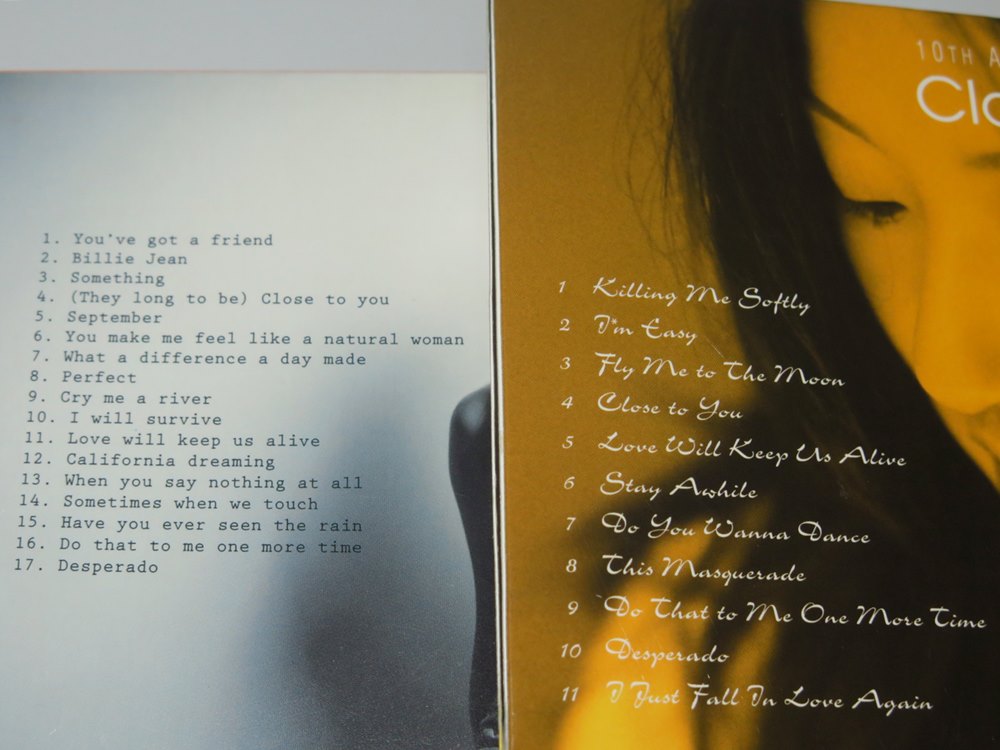 1. You've got a friend
2. Billie Jean
3. Something
4. (They long to be) Close to you
5. September
6. You make me feel like a natural woman
7. What a difference a day made
8. Perfect
9. Cry me a river
10. I will survive
11. Love will keep us alive
12. California dreaming
13. When you say nothing at all
14. Sometimes when we touch
15. Have you ever seen the rain
16. Do that to me one more time
17. Desperado
10TH A
Clo
1 Killing Me Softly
2 I'm Easy
3 Fly Me to The Moon
4 Close to You
5 Love Will Keep Us Alive
6 Stay Awhile
7 Do You Wanna Dance
8 This Masquerade
9 Do That to Me One More Time
10 Desperado
11 I Just Fall In Love Again